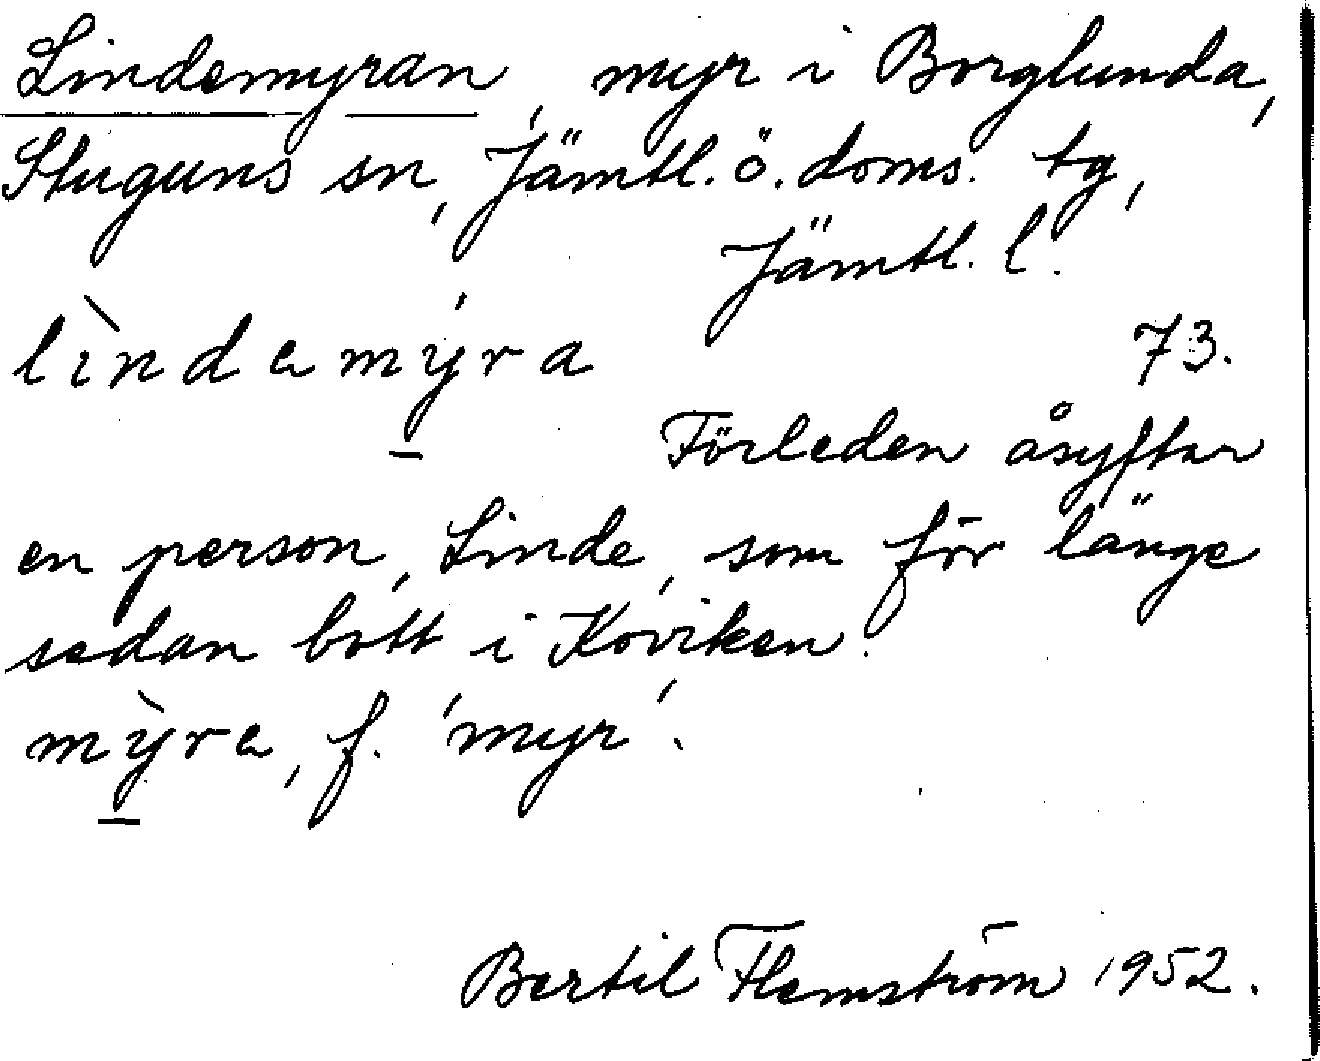 Lindemyran, myr i Borglunda,
Stuguns sn, Jämtl. ö. doms. tg,
Jämtl. l.
lìndemý̱ra 73.
Förleden åsyftar
en person, Linde, som för länge
sedan bott i Koviken.
mỳ̱ra, f. 'myr'.
Bertil Flemström 1952.